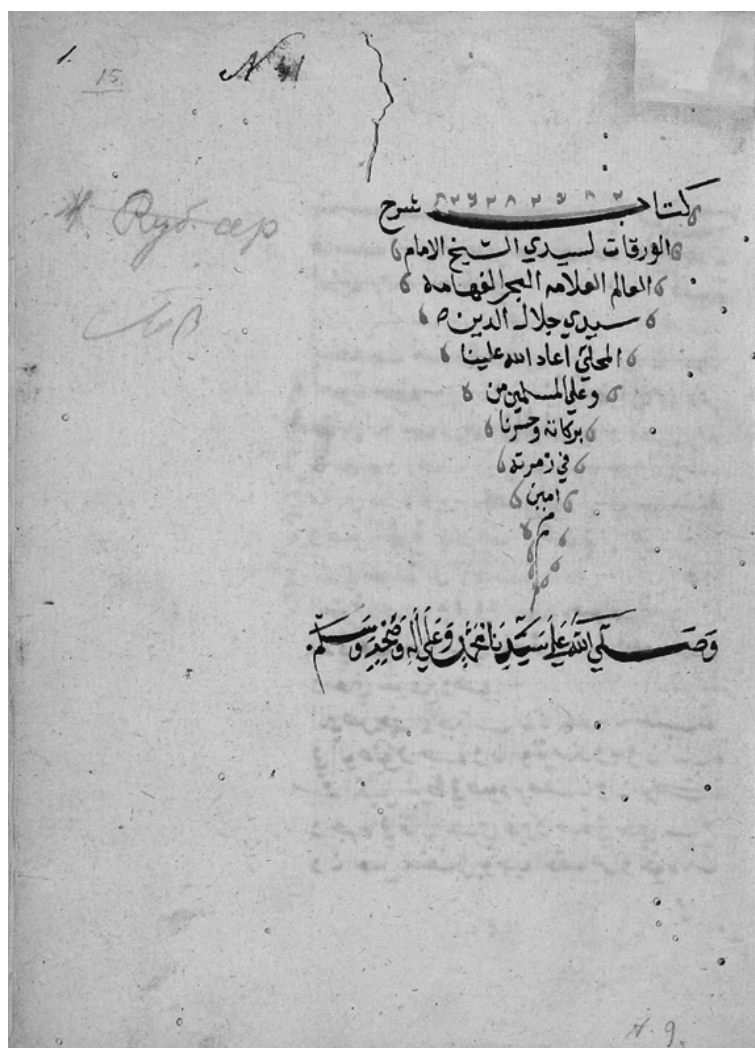 1.
15.
N 41
كتاب شرح
الورقات لسيدي الشيخ الامام
العالم العلامه البحر الفهامة
سيدي جلال الدين
المحلي اعاد الله علينا
وعلي المسلمين من
بركاته وحسرنا
في زمرته
امين
م
وَصَلَّي اللَّهُ عَلَي سَيِّدِنَا مُحَمَّدٍ وَعَلَي آلِهِ وَصَحْبِهِ وَسَلَّم.
N. 9.